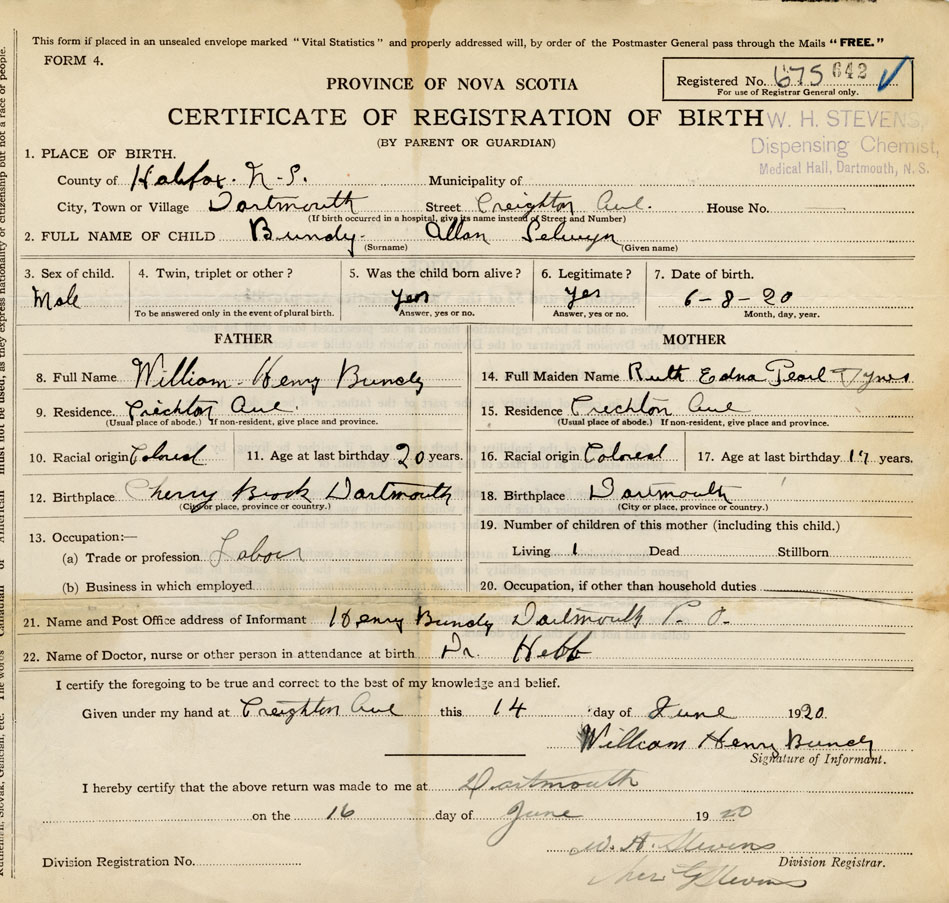 This form if placed in an unsealed envelope marked "Vital Statistics" and properly addressed will, by order of the Postmaster General pass through the Mails "FREE."
FORM 4.
Registered No. 675 642
For use of Registrar General only.
PROVINCE OF NOVA SCOTIA
CERTIFICATE OF REGISTRATION OF BIRTH
(BY PARENT OR GUARDIAN)
W. H. STEVENS,
Dispensing Chemist,
Medical Hall, Dartmouth, N. S.
1. PLACE OF BIRTH.
County of Halifax. N-S. Municipality of
City, Town or Village Dartmouth Street Creighton Ave. House No.
(If birth occurred in a hospital, give its name instead of Street and Number)
2. FULL NAME OF CHILD Bundy. Allan Selwyn
(Surname) (Given name)
3. Sex of child. 4. Twin, triplet or other? 5. Was the child born alive? 6. Legitimate? 7. Date of birth.
Male yes yes 6-8-20
To be answered only in the event of plural birth. Answer, yes or no. Answer, yes or no. Month, day, year.
FATHER MOTHER
8. Full Name William Henry Bundy 14. Full Maiden Name Ruth Edna Pearl Tynes
9. Residence. Creichton Ave. 15. Residence Creichton Ave
(Usual place of abode.) If non-resident, give place and province. (Usual place of abode.) If non-resident, give place and province.
10. Racial origin Colored 11. Age at last birthday 20 years. 16. Racial origin Colored 17. Age at last birthday years.
12. Birthplace Cherry Brook Dartmouth 18. Birthplace Dartmouth
(City or place, province or country.) (City or place, province or country.)
19. Number of children of this mother (including this child.)
13. Occupation:—
(a) Trade or profession Labour Living 1 Dead Stillborn
(b) Business in which employed 20. Occupation, if other than household duties
21. Name and Post Office address of Informant Henry Bundy Dartmouth P. O.
22. Name of Doctor, nurse or other person in attendance at birth Dr. Hebb
I certify the foregoing to be true and correct to the best of my knowledge and belief.
Given under my hand at Creighton Ave this 14 day of June 1920.
William Henry Bundy
Signature of Informant.
I hereby certify that the above return was made to me at Dartmouth
on the 16 day of June 1920
W. H. Stevens
Division Registrar.
Division Registration No.
Stevens